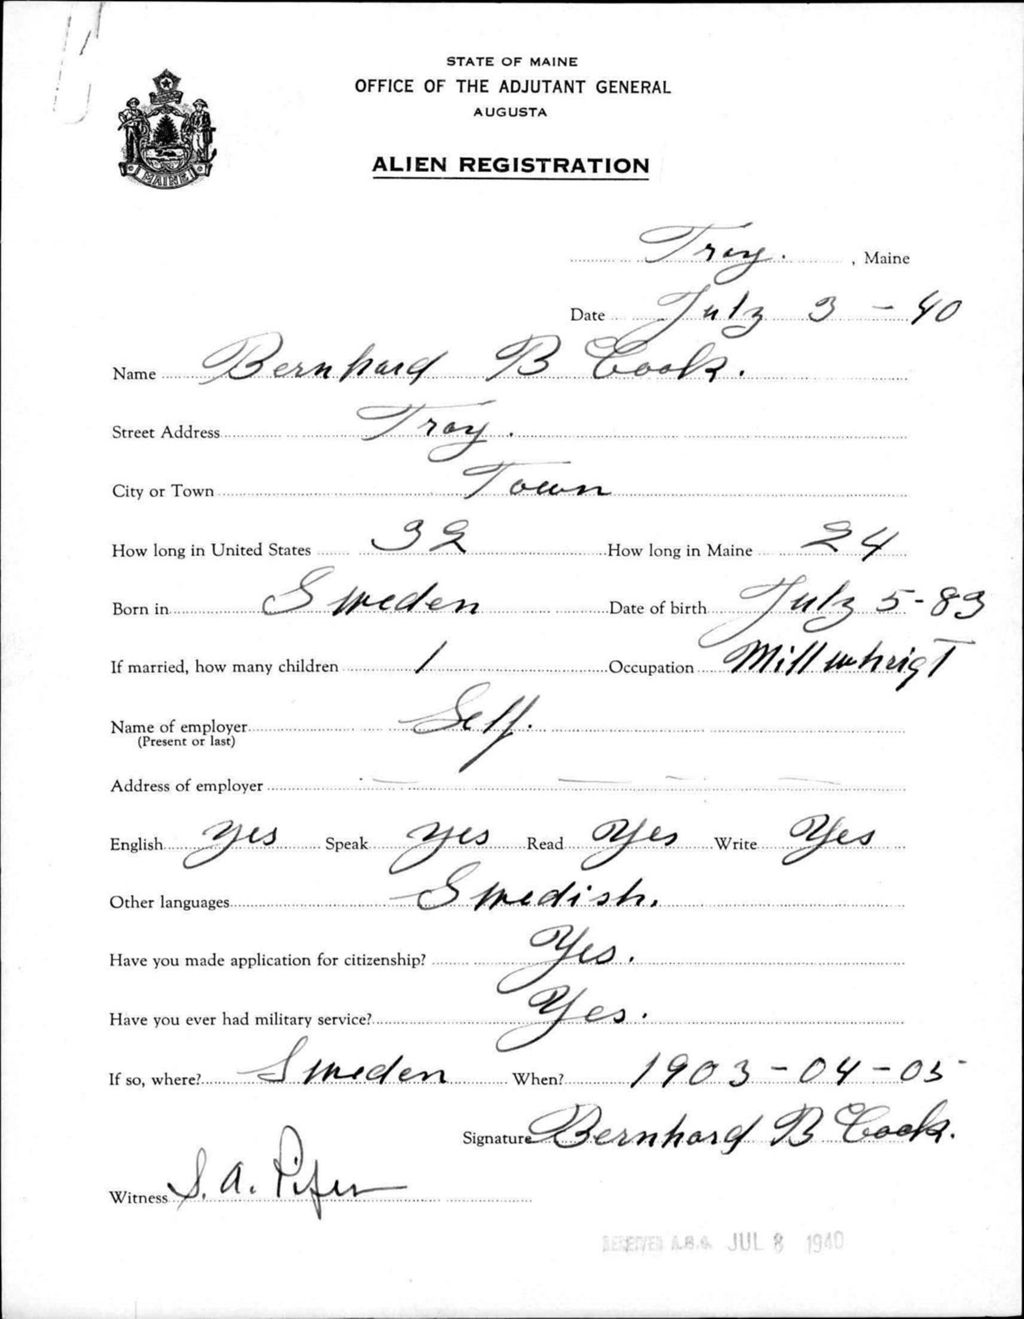 STATE OF MAINE
OFFICE OF THE ADJUTANT GENERAL
AUGUSTA
MAINE
ALIEN REGISTRATION
Troy. , Maine
Date July 3 - 40
Name Bernhard B Cook.
Street Address Troy.
City or Town Town
How long in United States 32 How long in Maine 24
Born in Sweden Date of birth July 5-83
If married, how many children 1 Occupation Millwheigt
Name of employer Self.
(Present or last)
Address of employer
English yes Speak yes Read Yes Write Yes
Other languages Swedish.
Have you made application for citizenship? Yes.
Have you ever had military service? Yes.
If so, where? Sweden When? 1903-04-05
Signature Bernhard B Cook.
Witness S. A. Pifer
RECEIVED A.G.O. JUL 8 1940